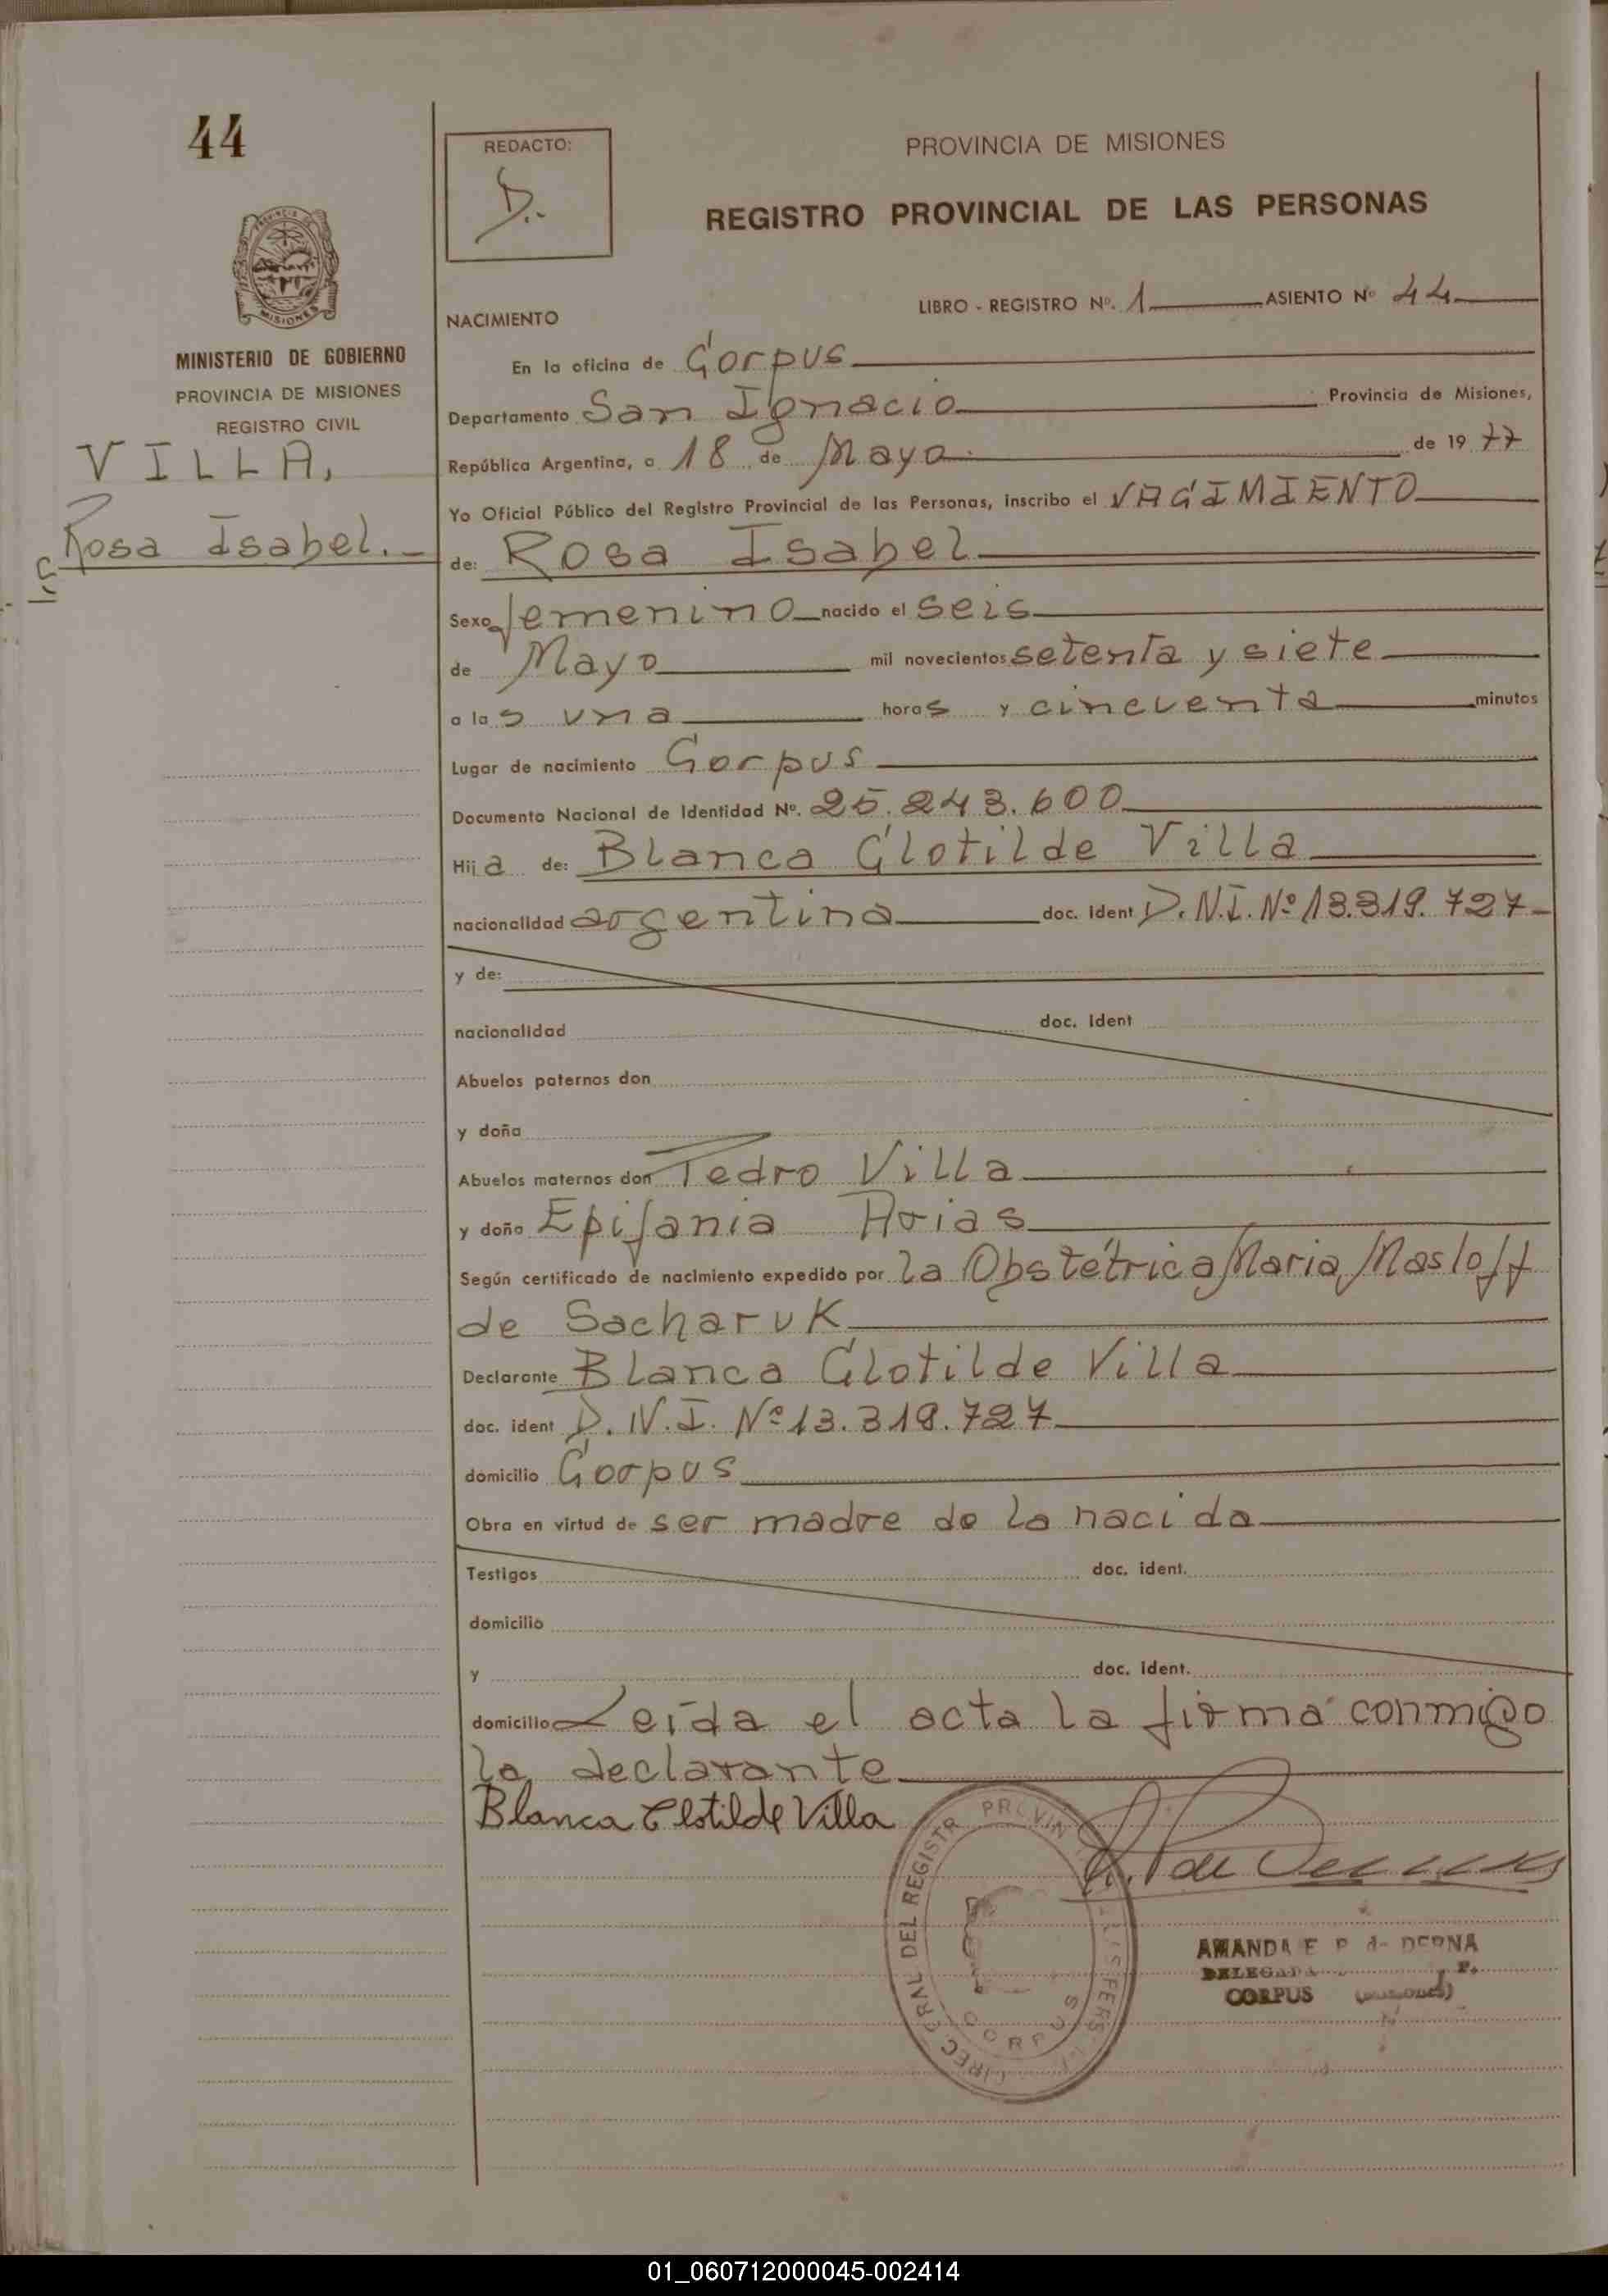 44
MINISTERIO DE GOBIERNO
PROVINCIA DE MISIONES
REGISTRO CIVIL
VILLA,
Rosa Isabel.-
REDACTO:
D..
PROVINCIA DE MISIONES
REGISTRO PROVINCIAL DE LAS PERSONAS
LIBRO - REGISTRO Nº. 1 ASIENTO Nº 44
NACIMIENTO
En la oficina de Corpus
Departamento San Ignacio Provincia de Misiones,
República Argentina, a 18 de Mayo de 1977
Yo Oficial Público del Registro Provincial de las Personas, inscribo el NACIMIENTO
de: Rosa Isabel
Sexo femenino nacido el seis
de Mayo mil novecientos setenta y siete
a las una horas y cincuenta minutos
Lugar de nacimiento Corpus
Documento Nacional de Identidad Nº. 25.243.600
Hija de: Blanca Clotilde Villa
nacionalidad argentina doc. Ident D.N.I. Nº 13.319.727
y de:
nacionalidad doc. Ident
Abuelos paternos don
y doña
Abuelos maternos don Pedro Villa
y doña Epifania Arias
Según certificado de nacimiento expedido por la Obstétrica Maria Masloff
de Sacharuk
Declarante Blanca Clotilde Villa
doc. ident D.N.I. Nº 13.319.727
domicilio Corpus
Obra en virtud de ser madre de la nacida
Testigos doc. ident.
domicilio
y doc. ident.
domicilio Leída el acta la firma conmigo
la declarante
Blanca Clotilde Villa
CORPUS
AMANDA E. P. de DERNA
DELEGADA
CORPUS (MISIONES)
01_060712000045-002414